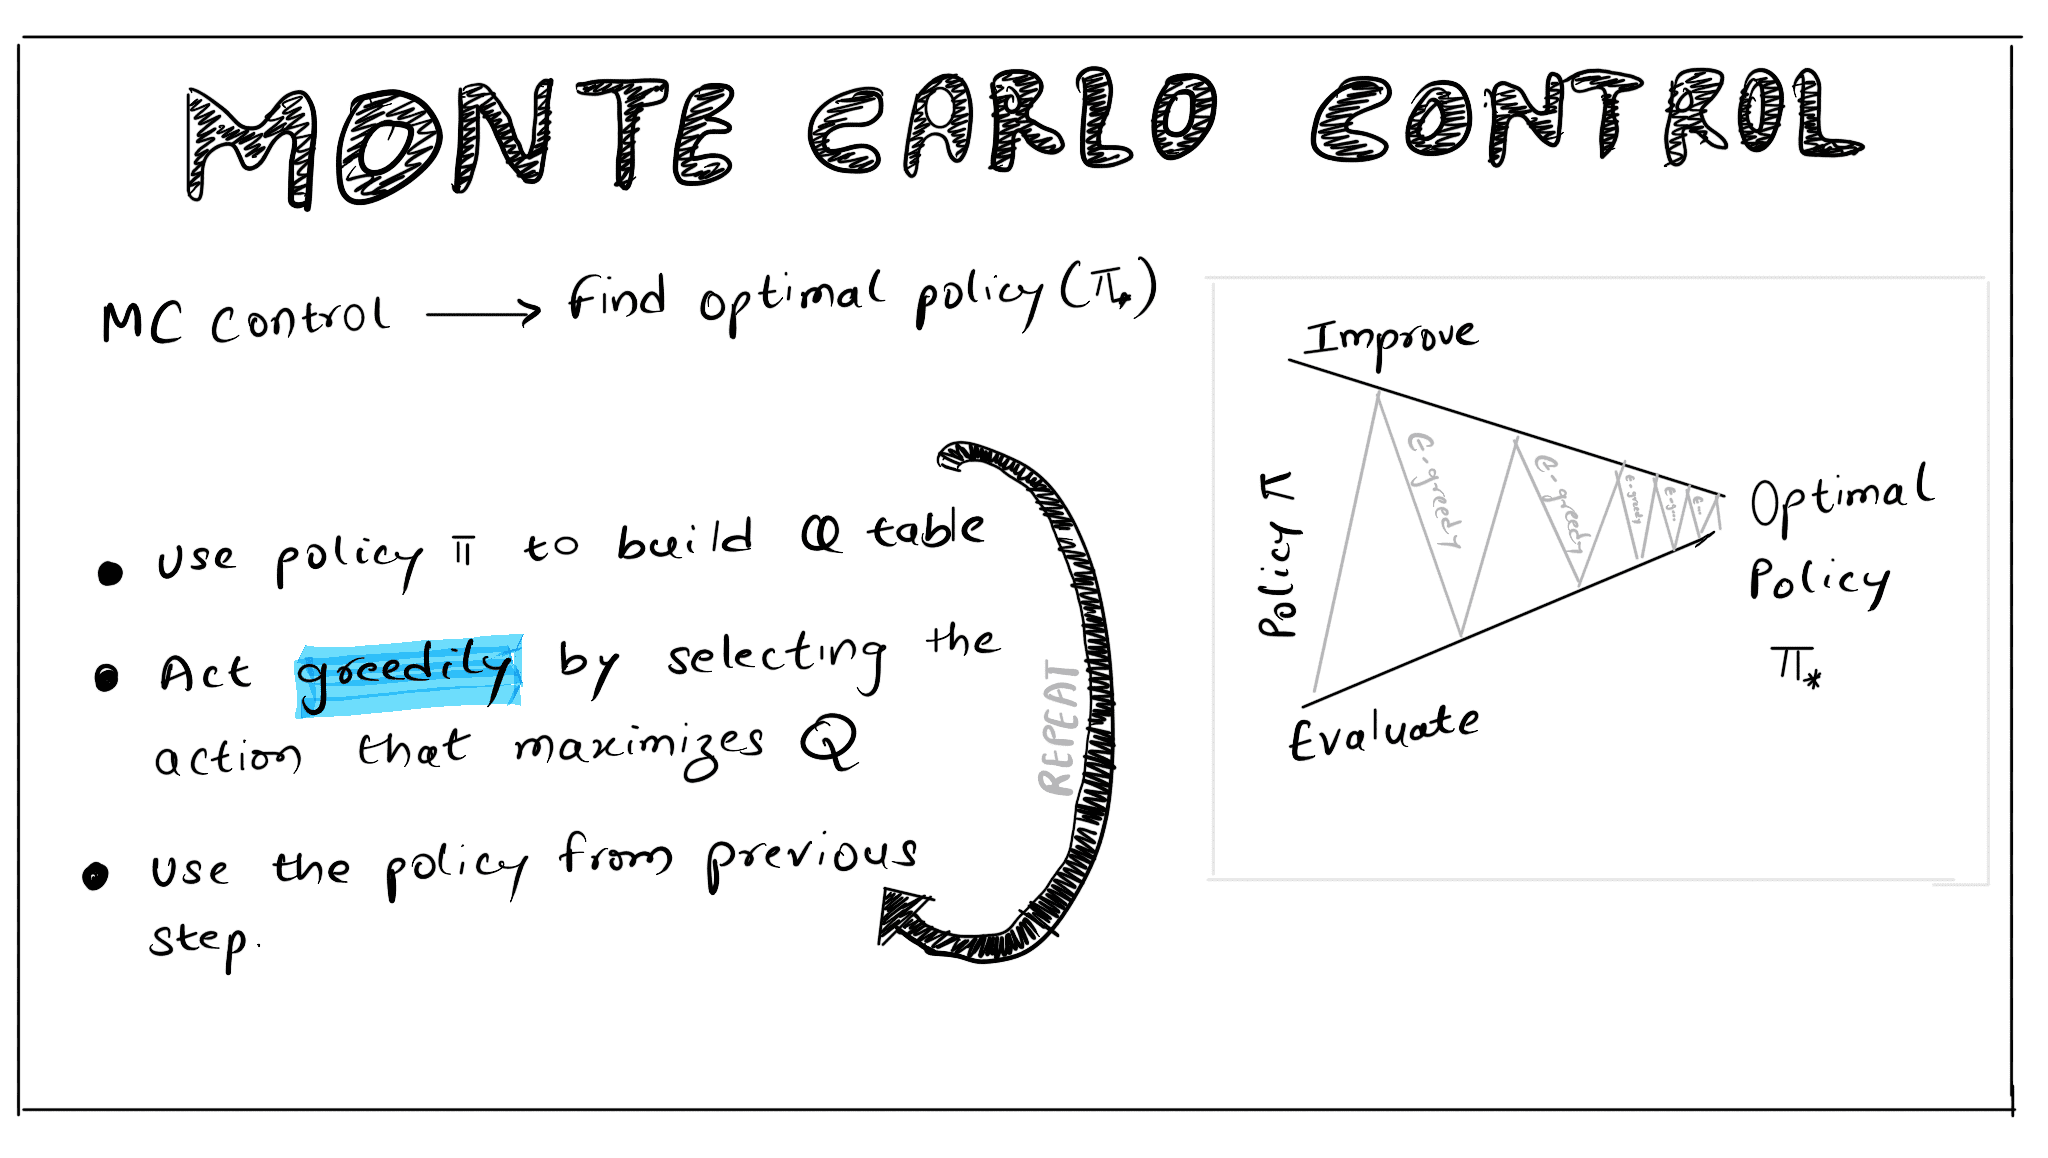 MONTE CARLO CONTROL
MC control → find optimal policy (π*)
• use policy π to build Q table
• Act greedily by selecting the
action that maximizes Q
• use the policy from previous
step.
REPEAT
Improve
Policy π
ϵ-greedy
ϵ-greedy
ϵ-greedy
ϵ-g...
ϵ...
Evaluate
Optimal
Policy
π*